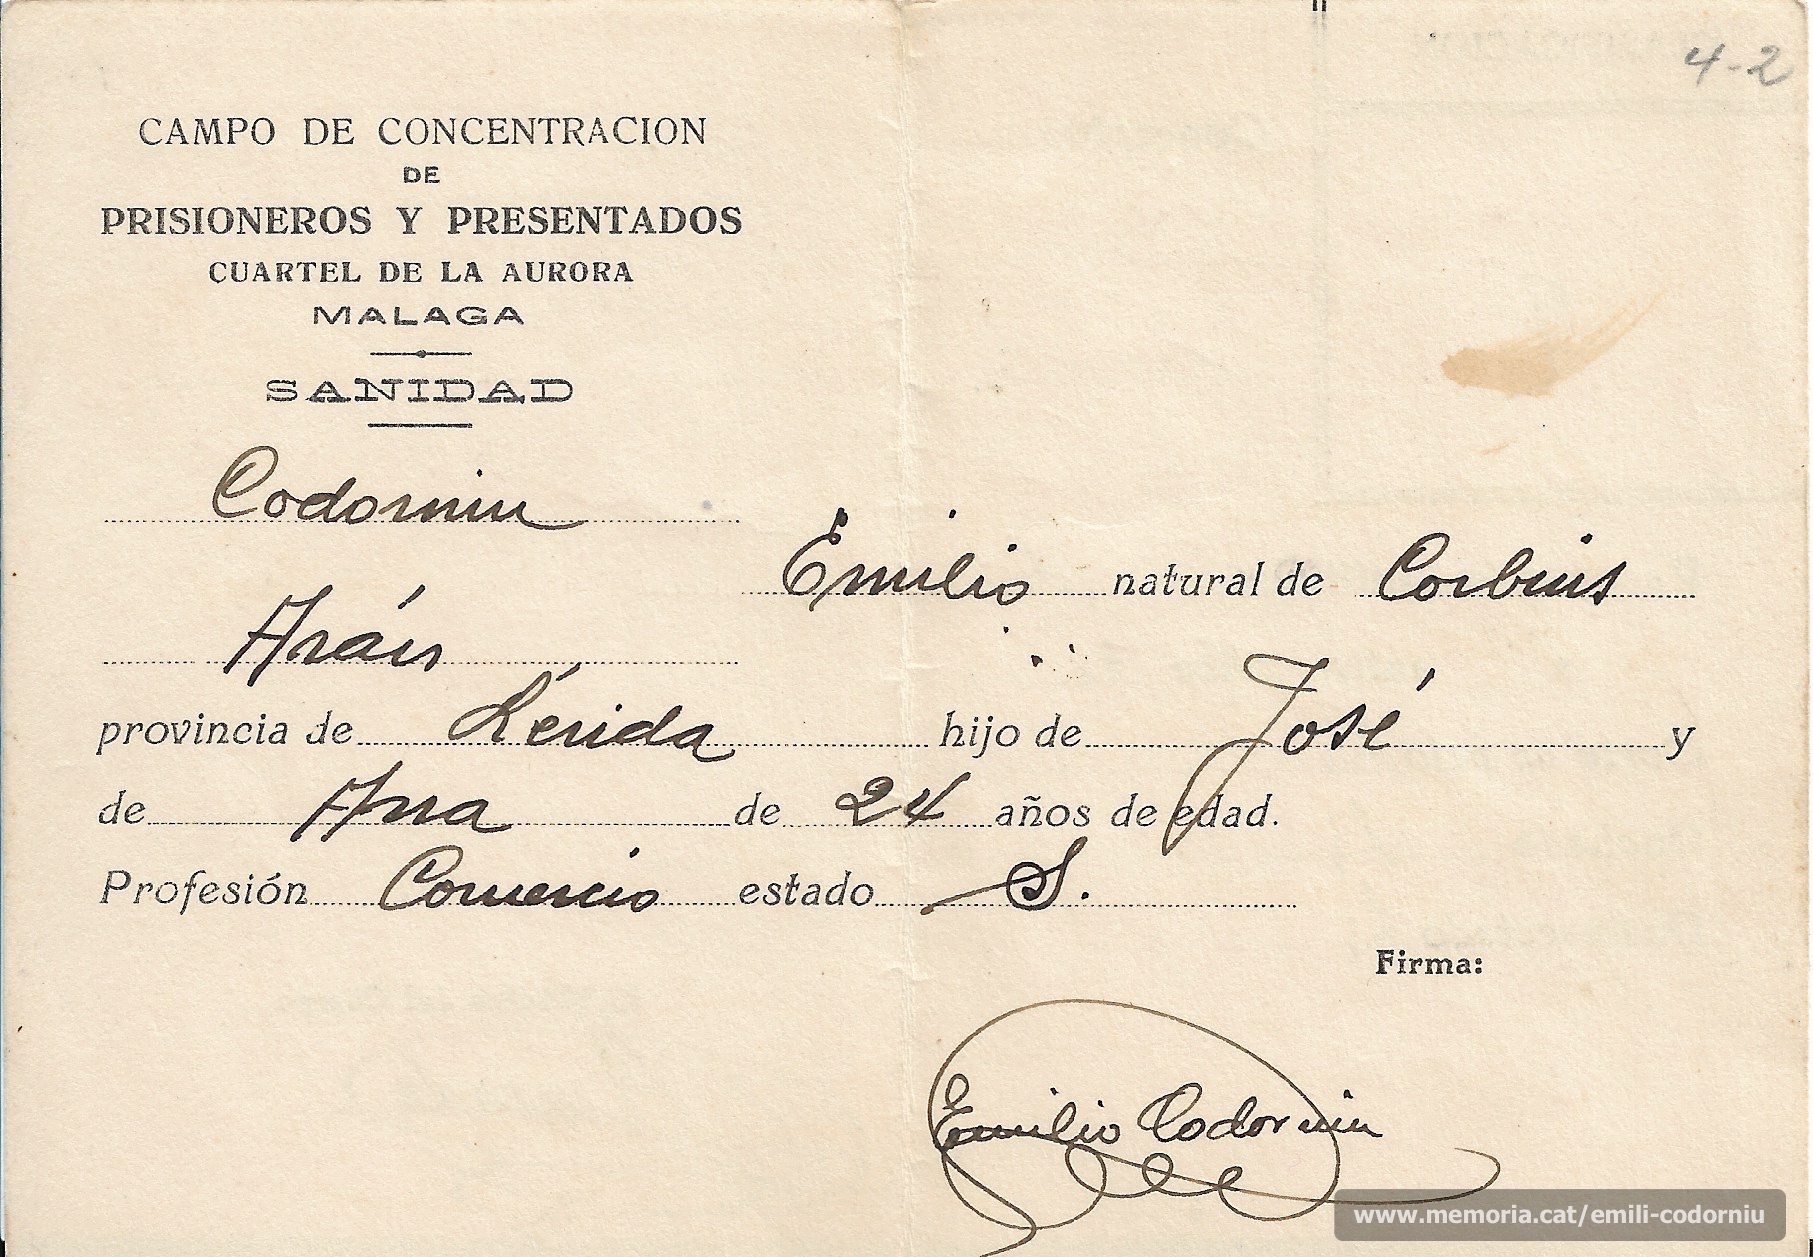 4-2
CAMPO DE CONCENTRACION
DE
PRISIONEROS Y PRESENTADOS
CUARTEL DE LA AURORA
MALAGA
SANIDAD
Codorniu
Emilio natural de Corbins
Aráis
provincia de Lérida hijo de José y
de Ana de 24 años de edad.
Profesión Comercio estado S.
Firma:
Emilio Codorniu
www.memoria.cat/emili-codorniu